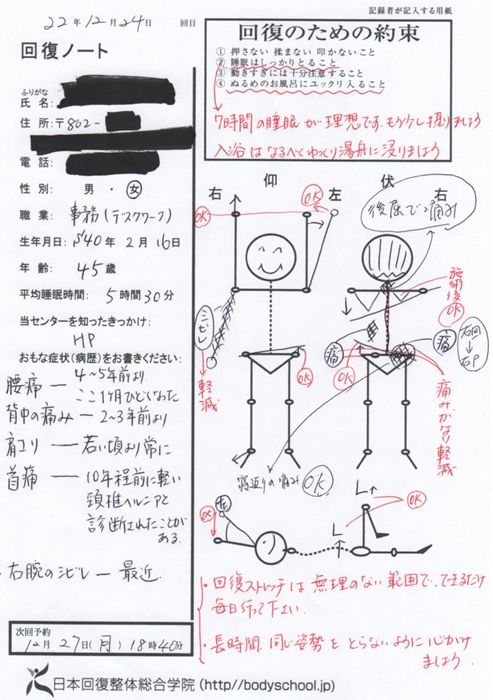 記録者が記入する用紙
22年12月24日 回目
回復ノート
回復のための約束
① 押さない 揉まない 叩かないこと
② 睡眠はしっかりとること
③ 動きすぎには十分注意すること
④ ぬるめのお風呂にユックリ入ること
7時間の睡眠が理想です。もう少し摂りましょう
入浴はなるべくゆっくり湯舟に浸りましょう
ふりがな
氏名:
住所:〒802-
電話:
性別: 男・女
職業: 事務(デスクワーク)
生年月日: S40年2月16日
年齢: 45歳
平均睡眠時間: 5時間30分
当センターを知ったきっかけ:
HP
おもな症状(病歴)をお書きください:
腰痛 — 4〜5年前より
ここ1ヶ月ひどくなった
背中の痛み — 2〜3年前より
肩コリ — 若い頃より常に
首痛 — 10年程前に軽い
頸椎ヘルニアと
診断されたことが
ある
・右腕のシビレ — 最近
次回予約
12月27日(月)18時40分
右 仰 左
OK
OK
シビレ
軽減
OK
伏 右
後屈で痛み
施術後
OK
痛
OK
痛
痛みかなり軽減
寝返りの痛み OK
OK
左
L
L
OK
・回復ストレッチは無理のない範囲で、できるだけ
毎日行って下さい。
・長時間同じ姿勢をとらないように心がけ
ましょう。
日本回復整体総合学院(http://bodyschool.jp)